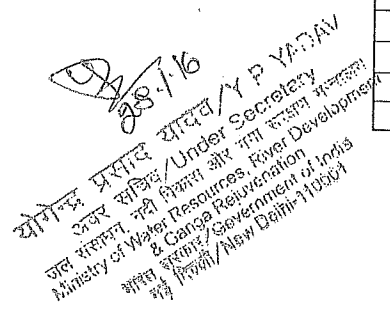 28/1/16
योगेन्द्र प्रसाद यादव/Y P YADAV
अवर सचिव/Under Secretary
जल संसाधन, नदी विकास और गंगा संरक्षण मन्त्रालय
Ministry of Water Resources, River Development
& Ganga Rejuvenation
भारत सरकार/Government of India
नई दिल्ली/New Delhi-110001